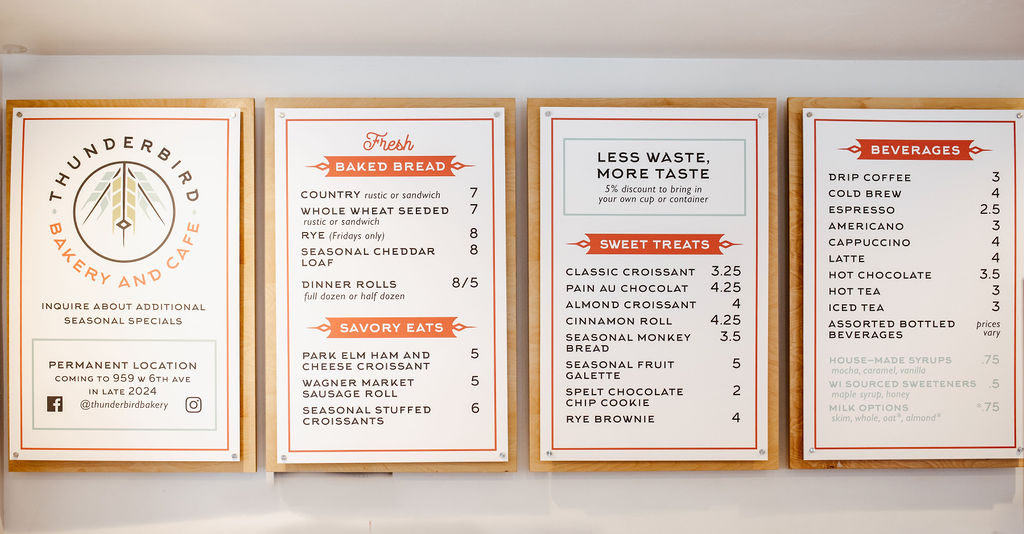 THUNDERBIRD
BAKERY AND CAFE
INQUIRE ABOUT ADDITIONAL
SEASONAL SPECIALS
PERMANENT LOCATION
COMING TO 959 W 6TH AVE
IN LATE 2024
@thunderbirdbakery
Fresh
BAKED BREAD
COUNTRY rustic or sandwich 7
WHOLE WHEAT SEEDED 7
rustic or sandwich
RYE (Fridays only) 8
SEASONAL CHEDDAR 8
LOAF
DINNER ROLLS 8/5
full dozen or half dozen
SAVORY EATS
PARK ELM HAM AND 5
CHEESE CROISSANT
WAGNER MARKET 5
SAUSAGE ROLL
SEASONAL STUFFED 6
CROISSANTS
LESS WASTE,
MORE TASTE
5% discount to bring in
your own cup or container
SWEET TREATS
CLASSIC CROISSANT 3.25
PAIN AU CHOCOLAT 4.25
ALMOND CROISSANT 4
CINNAMON ROLL 4.25
SEASONAL MONKEY 3.5
BREAD
SEASONAL FRUIT 5
GALETTE
SPELT CHOCOLATE 2
CHIP COOKIE
RYE BROWNIE 4
BEVERAGES
DRIP COFFEE 3
COLD BREW 4
ESPRESSO 2.5
AMERICANO 3
CAPPUCCINO 4
LATTE 4
HOT CHOCOLATE 3.5
HOT TEA 3
ICED TEA 3
ASSORTED BOTTLED prices
BEVERAGES vary
HOUSE-MADE SYRUPS .75
mocha, caramel, vanilla
WI SOURCED SWEETENERS .5
maple syrup, honey
MILK OPTIONS *.75
skim, whole, oat*, almond*